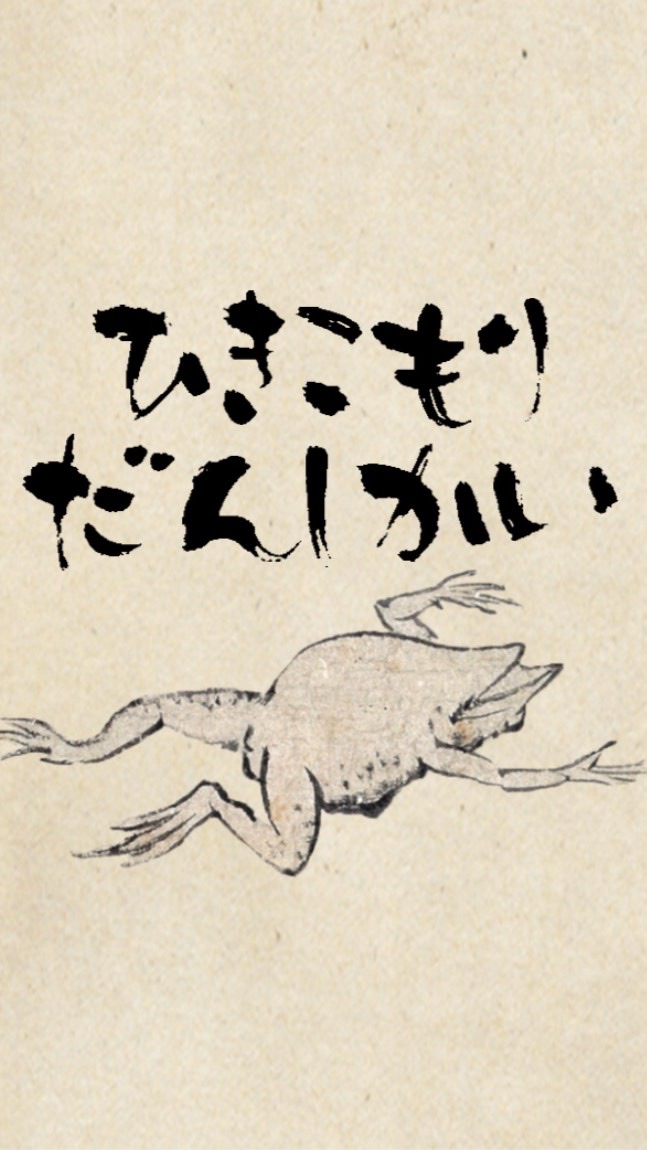 ひきこもり
だんしかい